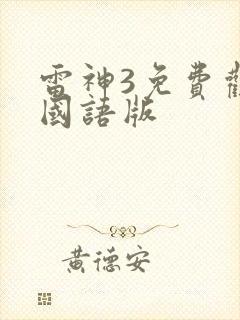 雷神3免費觀
國語版
黃德安